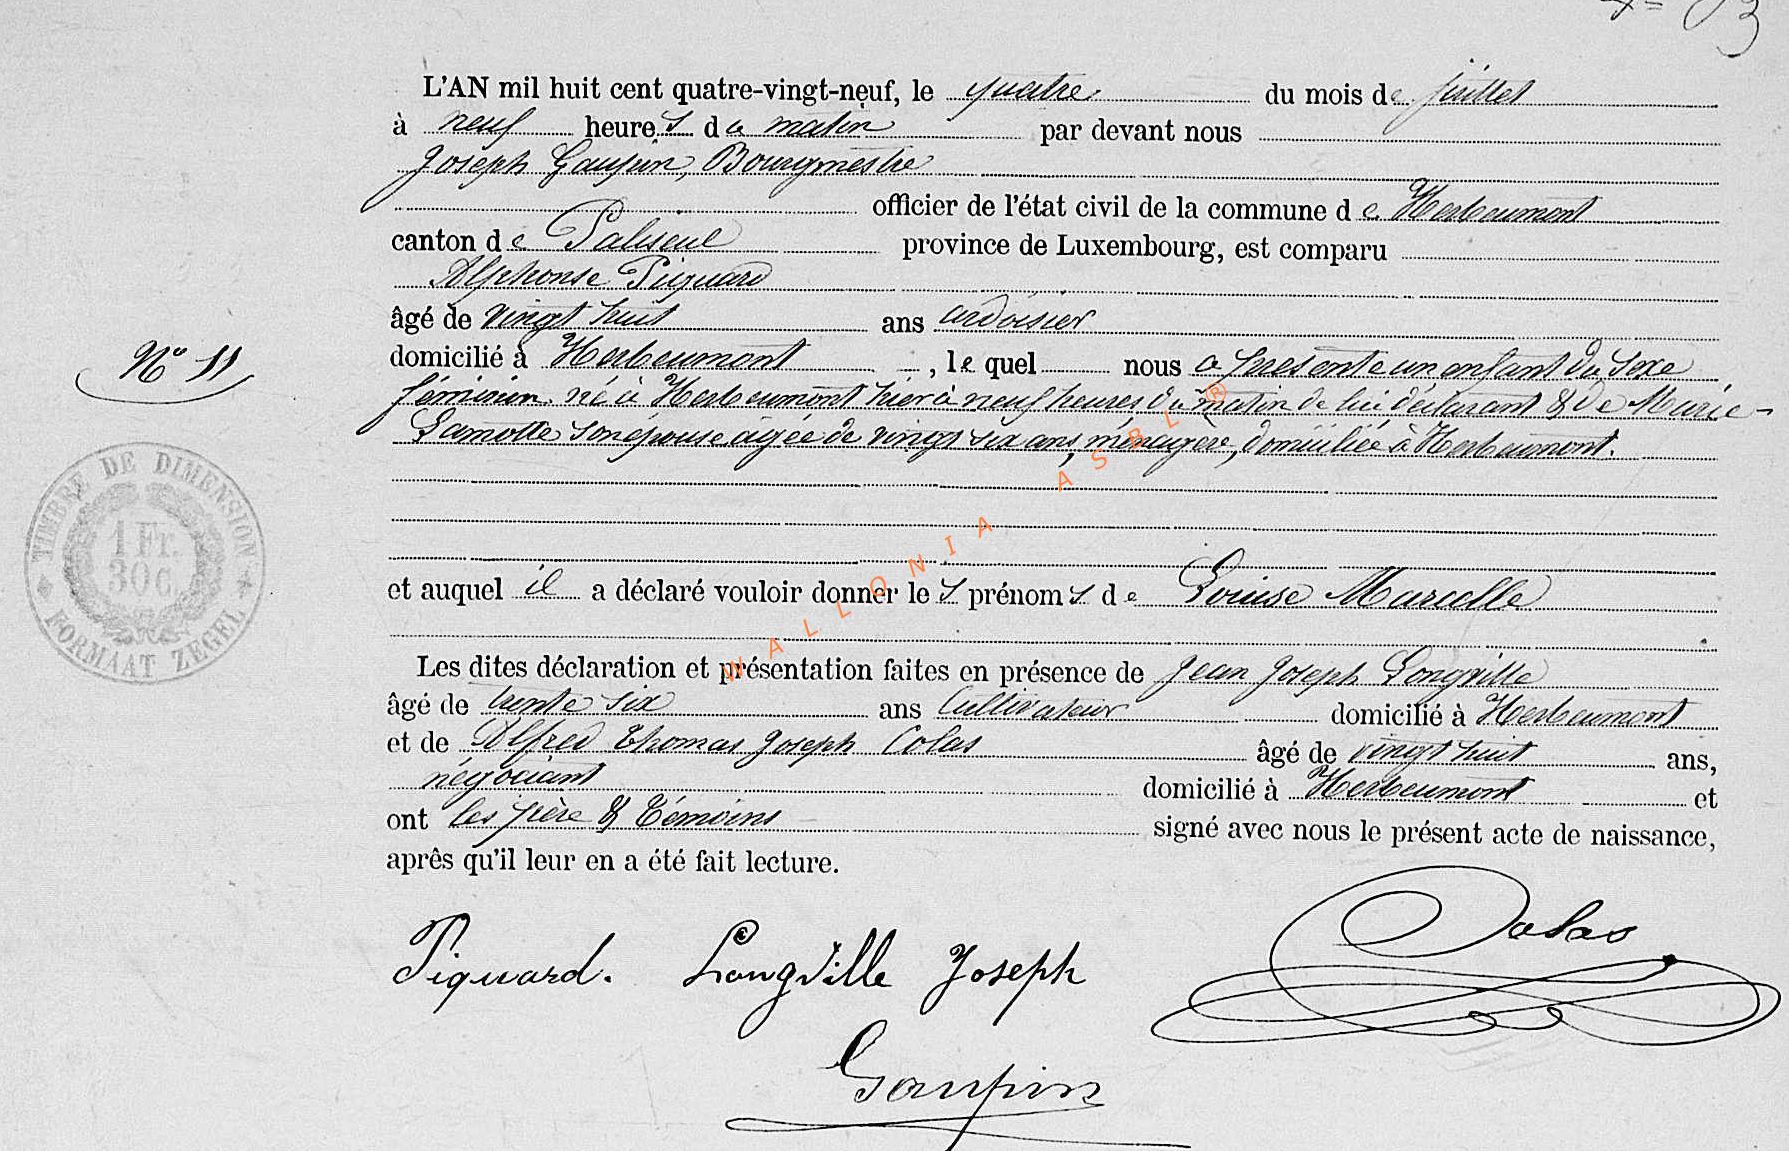 L'AN mil huit cent quatre-vingt-neuf, le quatre du mois de juillet
à neuf heures du matin par devant nous
Joseph Gaupin, Bourgmestre
officier de l'état civil de la commune de Herbeumont
canton de Paliseul province de Luxembourg, est comparu
Alphonse Piquard
âgé de vingt huit ans ardoisier
domicilié à Herbeumont, lequel nous a présenté un enfant du sexe
N° 11
féminin né à Herbeumont hier à neuf heures du matin de lui déclarant & de Marie
Lamotte son épouse âgée de vingt six ans, ménagère, domiciliée à Herbeumont.
TIMBRE DE DIMENSION
1 Fr.
30 C.
FORMAAT ZEGEL
WALLONIA ASBL ®
et auquel il a déclaré vouloir donner les prénoms de Louise Marcelle
Les dites déclaration et présentation faites en présence de Jean Joseph Longville
âgé de trente six ans Cultivateur domicilié à Herbeumont
et de Alfred Thomas Joseph Colas âgé de vingt huit ans,
négociant domicilié à Herbeumont et
ont les père & Témoins signé avec nous le présent acte de naissance,
après qu'il leur en a été fait lecture.
Piquard. Longville Joseph Colas
Gaupin